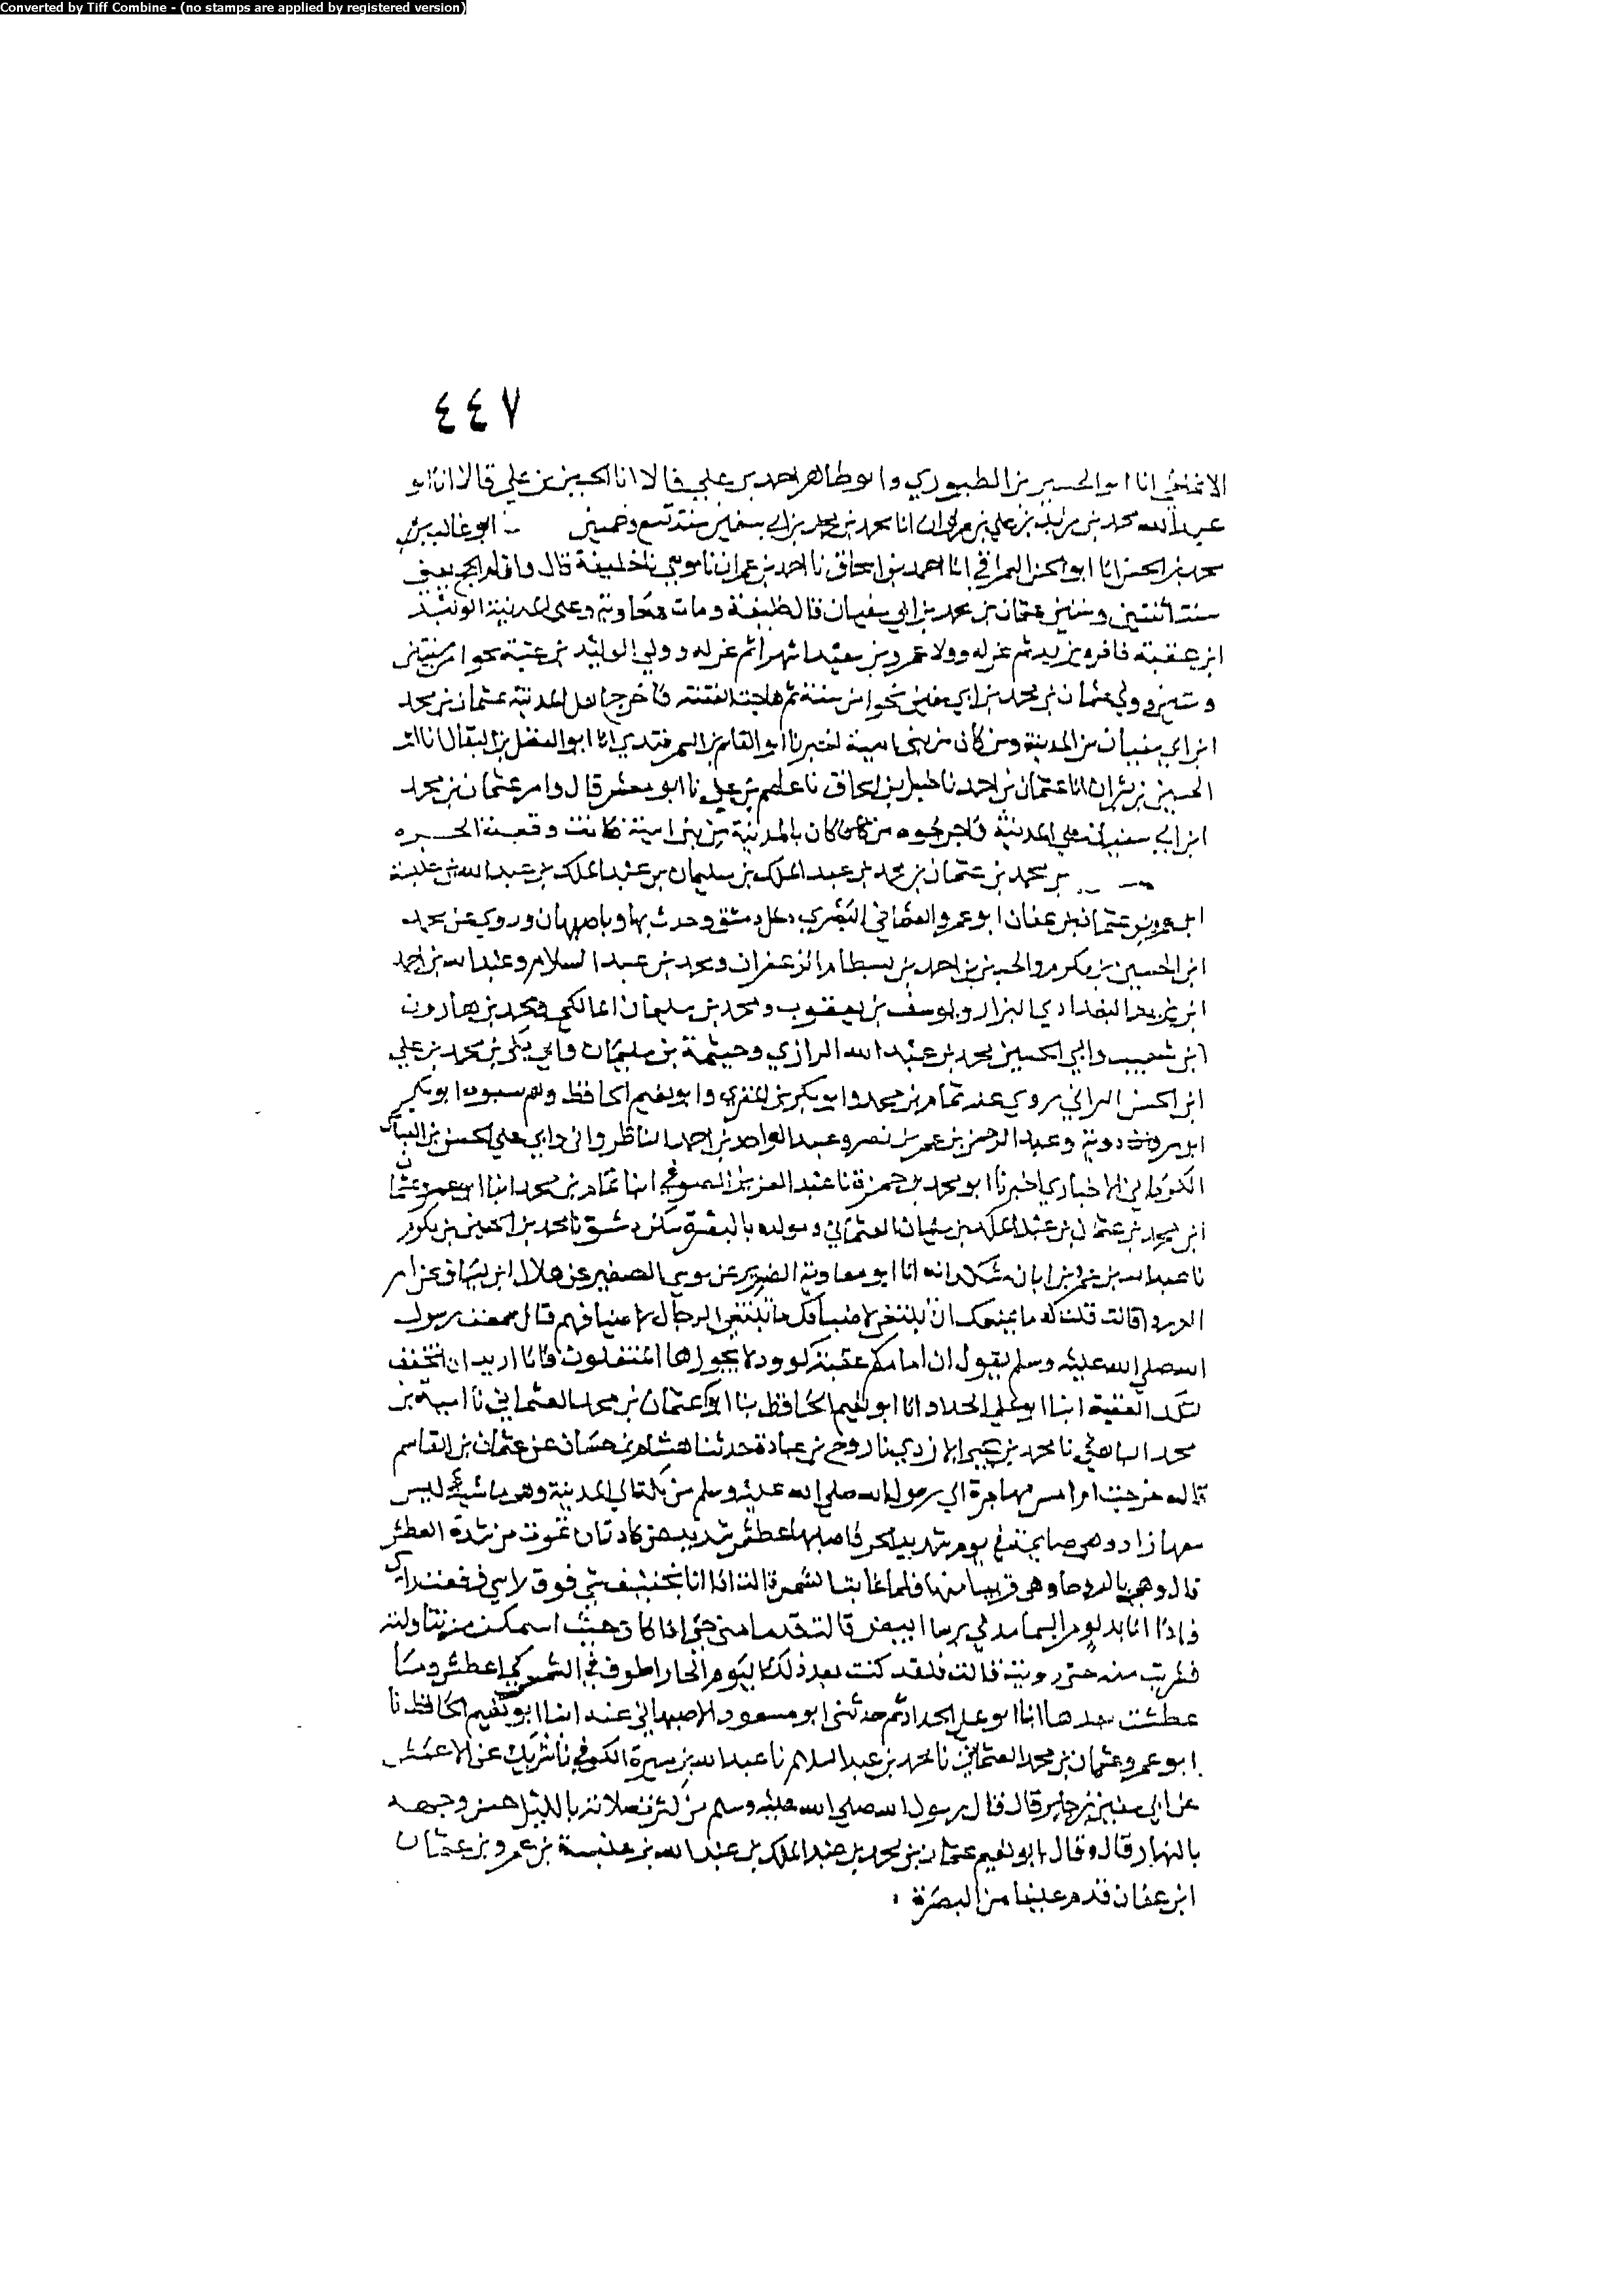 Converted by Tiff Combine - (no stamps are applied by registered version)
٤٤٧
الانماطي انا ابو الحسين بن الطيوري وابو طاهر احمد بن علي قالا انا الحسين بن علي قالا انا ابو
عبد الله محمد بن زيد بن علي بن مروان انا محمد بن محمد بن سنة تسع وخمسين ابو غالب بن
محمد بن الحسن انا ابو الحسن السيرافي انا احمد بن اسحاق نا احمد بن عمران نا موسى نا خليفة قال واقام الحج يعني
سنة اثنتين وستين عثمان بن محمد بن ابي سفيان قال خليفة ومات معاوية وعلى المدينة الوليد
ابن عتبة فاقره يزيد ثم عزله وولا عمرو بن سعيد اشهرا ثم عزله وولي الوليد بن عتبة نحوا من سنتين
وولي عثمان بن محمد بن ابي سفين نحوا من سنة ثم هاجت الفتنة فاخرج اهل المدينة عثمان بن محمد
ابن ابي سفيان من المدينة ومن كان من بني امية اخبرنا ابو القاسم بن السمرقندي انا ابو الفضل بن البقال انا ابو
الحسين بن بشران انا عثمان بن احمد نا حنبل بن اسحاق نا عاصم بن علي نا ابو معشر قال وامر عثمان بن محمد
ابن ابي سفيان على المدينة فاخرجوه من كان بالمدينة من بني امية فكانت وقعة الحره
بن محمد بن عثمان بن محمد بن عبد الملك بن سليمان بن عبد الملك بن عبد الله بن عنبسة
ابن عمرو بن عثمان بن عفان ابو عمرو العثماني البصري دخل دمشق وحدث بها وباصبهان وروى عن محمد
ابن الحسين بن مكرم والحسين بن احمد بن بسطام الزعفران ومحمد بن عبد السلام وعبد الله بن احمد
ابن يزيد البغدادي البزار ويوسف بن يعقوب ومحمد بن سليمان المالكي ومحمد بن هارون
ابن شعيب وابي الحسين محمد بن عبد الله الرازي وخيثمة بن سليمان وابي بكر بن محمد بن علي
ابن الحسن البراني روى عنه تمام بن محمد وابو بكر بن المقري وابو نعيم الحافظ وابو بكر
ابن مردويه وعبد الرحمن بن عمر بن نصر وعبد الواحد بن احمد الناطرواني وابي علي الحسن بن
الاخباري اخبرنا ابو محمد بن حمزة نا عبد العزيز الصوفي انبا تمام بن محمد انبا ابو عمرو عثمان
ابن محمد بن عثمان بن عبد الملك بن سليمان العثماني ومولده بالبصرة سكن دمشق نا محمد بن الحسين بن مكرم
نا عبد الله بن عمر بن ابان انا ابو معاوية الضرير عن موسى الصغير عن هلال ابن يساف عن ام
الدرداء قالت قلت له ما يمنعك ان تبتغي لاضيافك ما تبتغي الرجال لاضيافهم قال سمعت رسول
الله صلى الله عليه وسلم يقول ان امامكم عقبة كوودا لا يجوزها المثقلون فانا اريد ان اتخفف
لتلك العقبة انبا ابو علي الحداد انا ابو نعيم الحافظ نا ابو عثمان بن محمد العثماني نا امية بن
محمد الباهلي نا محمد بن يحيى الازدي نا روح بن عبادة حدثنا هشام بن حسان عن عثمان بن القاسم
قال خرجت ام ايمن مهاجرة الى رسول الله صلى الله عليه وسلم من مكة الى المدينة وهي ماشية ليس
معها زاد وهي صايمة في يوم شديد الحر فاصابها عطش شديد حتى كادت ان تموت من شدة العطش
قال وهي بالروحا وهي قريب منها فلما غابت الشمس قالت اذا انا بحفيف شي فوق راسي فرفعت راسي
فاذا انا بدلو من السما مدلى برشا ابيض قالت فدنا مني حتى اذا كان حيث استمكن منه تناولته
فشربت منه حتى رويت قالت فلقد كنت بعد ذلك اليوم الحار اطوف في الشمس كي اعطش وما
عطشت بعدها انا ابو علي الحداد ثم حدثني ابو مسعود الاصبهاني عنه انبا ابو نعيم الحافظ نا
ابو عمرو عثمان بن محمد العثماني نا محمد بن عبد السلام نا عبد الله بن الكوفي نا شريك عن الاعمش
عن ابي سفين بن جابر قال قال رسول الله صلى الله عليه وسلم من كثرت صلاته بالليل حسن وجهه
بالنهار قال وقال ابو نعيم عثمان بن محمد بن عبد الملك بن عبد الله بن عنبسة بن عمرو بن عثمان
ابن عفان قدم علينا من البصرة